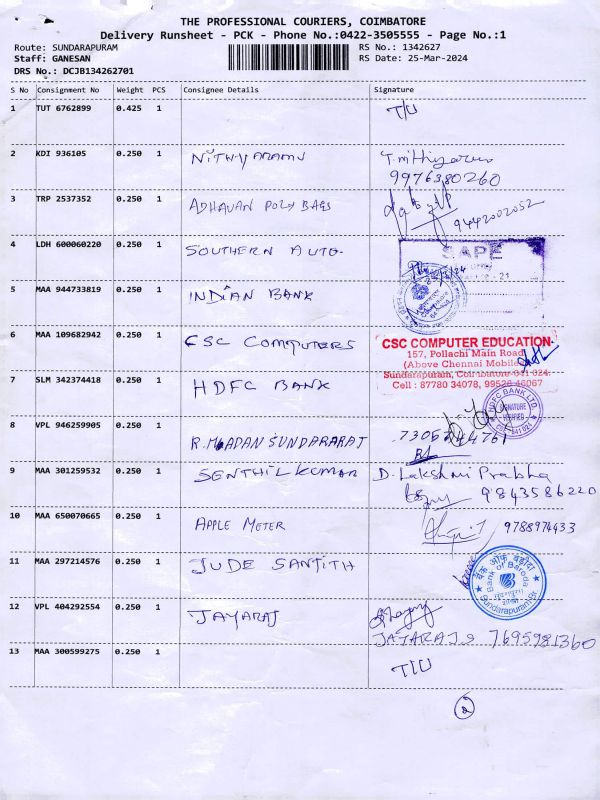 THE PROFESSIONAL COURIERS, COIMBATORE
Delivery Runsheet - PCK - Phone No.:0422-3505555 - Page No.:1
Route: SUNDARAPURAM RS No.: 1342627
Staff: GANESAN RS Date: 25-Mar-2024
DRS No.: DCJB134262701
S No Consignment No Weight PCS Consignee Details Signature
1 TUT 6762899 0.425 1 T/U
2 KDI 936105 0.250 1 NITHYARAMU
9976380260
3 TRP 2537352 0.250 1 ADHAVAN POLY BAGS
9442002052
4 LDH 600060220 0.250 1 SOUTHERN AUTO.
SAFE
5 MAA 944733819 0.250 1 INDIAN BANK
6 MAA 109682942 0.250 1 CSC COMPUTERS
CSC COMPUTER EDUCATION
157, Pollachi Main Road
(Above Chennai Mobile)
Sundarapuram, Coimbatore-641 024.
Cell : 87780 34078, 99526 46067
7 SLM 342374418 0.250 1 HDFC BANK
HDFC BANK LTD.
SIGNATURE
VERIFIED
8 VPL 946259905 0.250 1 R. MADAN SUNDARARAJ
9 MAA 301259532 0.250 1 SENTHIL KUMAR D. Lakshmi Prabha
9843586220
10 MAA 650070665 0.250 1 APPLE METER 9788974433
11 MAA 297214576 0.250 1 JUDE SANJITH
बैंक ऑफ़ बड़ौदा
Bank of Baroda
Sundarapuram Br.
12 VPL 404292554 0.250 1 JAYARAJ
JAYARAJ S 7695981360
13 MAA 300599275 0.250 1 T/U